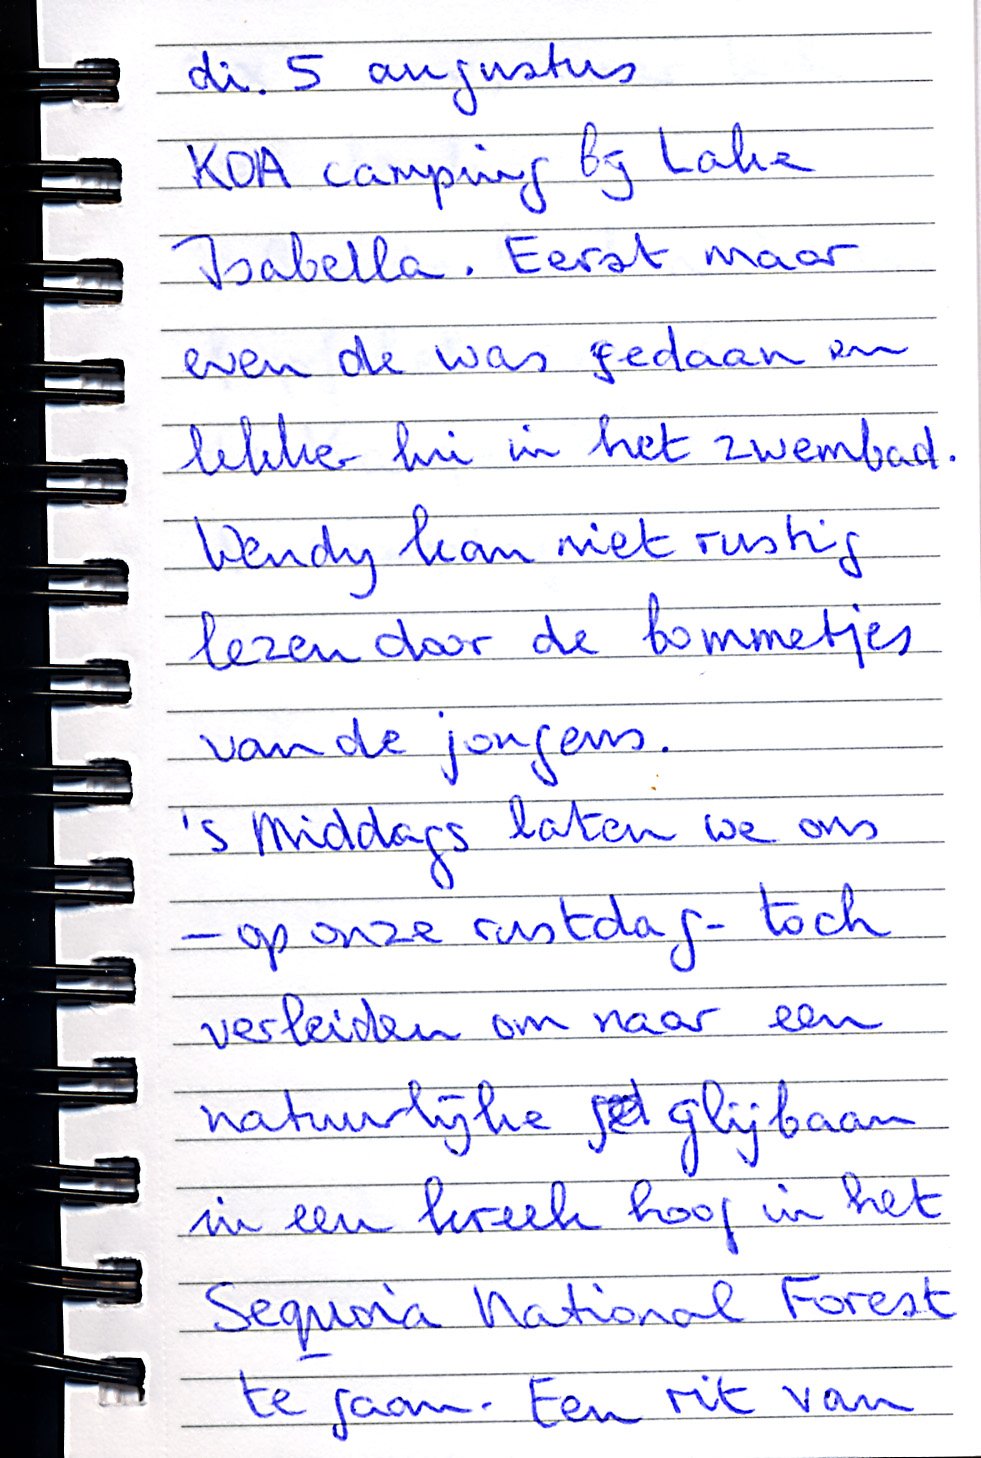 di. 5 augustus
KOA camping bij Lake
Isabella. Eerst maar
even de was gedaan en
lekker in het zwembad.
Wendy kan niet rustig
lezen door de bommetjes
van de jongens.
's Middags laten we ons
- op onze rustdag - toch
verleiden om naar een
natuurlijke glijbaan
in een kreek hoog in het
Sequoia National Forest
te gaan. Een rit van